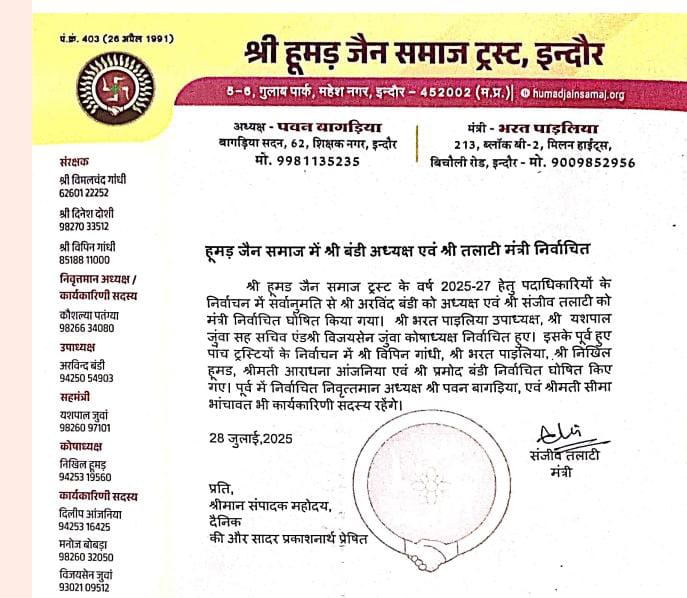 पं.क्रं. 403 (26 अप्रैल 1991)
श्री हूमड़ जैन समाज ट्रस्ट, इन्दौर
5-6, गुलाब पार्क, महेश नगर, इन्दौर - 452002 (म.प्र.)| humadjainsamaj.org
अध्यक्ष - पवन बागड़िया
बागड़िया सदन, 62, शिक्षक नगर, इन्दौर
मो. 9981135235
मंत्री - भरत पाड़लिया
213, ब्लॉक बी-2, मिलन हाईट्स,
बिचौली रोड, इन्दौर - मो. 9009852956
संरक्षक
श्री विमलचंद गांधी
62601 22252
श्री दिनेश दोशी
98270 33512
श्री विपिन गांधी
85188 11000
निवृत्तमान अध्यक्ष /
कार्यकारिणी सदस्य
कौशल्या पतंग्या
98266 34080
उपाध्यक्ष
अरविंद बंडी
94250 54903
सहमंत्री
यशपाल जुवां
98260 97101
कोषाध्यक्ष
निखिल हूमड़
94253 19560
कार्यकारिणी सदस्य
दिलीप आंजनिया
94253 16425
मनोज बोबड़ा
98260 32050
विजयसेन जुवां
93021 09512
हूमड़ जैन समाज में श्री बंडी अध्यक्ष एवं श्री तलाटी मंत्री निर्वाचित
श्री हूमड़ जैन समाज ट्रस्ट के वर्ष 2025-27 हेतु पदाधिकारियों के
निर्वाचन में सर्वानुमति से श्री अरविंद बंडी को अध्यक्ष एवं श्री संजीव तलाटी को
मंत्री निर्वाचित घोषित किया गया। श्री भरत पाड़लिया उपाध्यक्ष, श्री यशपाल
जुंवा सह सचिव एंडश्री विजयसेन जुंवा कोषाध्यक्ष निर्वाचित हुए। इसके पूर्व हुए
पांच ट्रस्टियों के निर्वाचन में श्री विपिन गांधी, श्री भरत पाड़लिया, श्री निखिल
हूमड, श्रीमती आराधना आंजनिया एवं श्री प्रमोद बंडी निर्वाचित घोषित किए
गए। पूर्व में निर्वाचित निवृत्तमान अध्यक्ष श्री पवन बागड़िया, एवं श्रीमती सीमा
भांचावत भी कार्यकारिणी सदस्य रहेंगे।
28 जुलाई,2025
संजीव तलाटी
मंत्री
प्रति,
श्रीमान संपादक महोदय,
दैनिक
की और सादर प्रकाशनार्थ प्रेषित